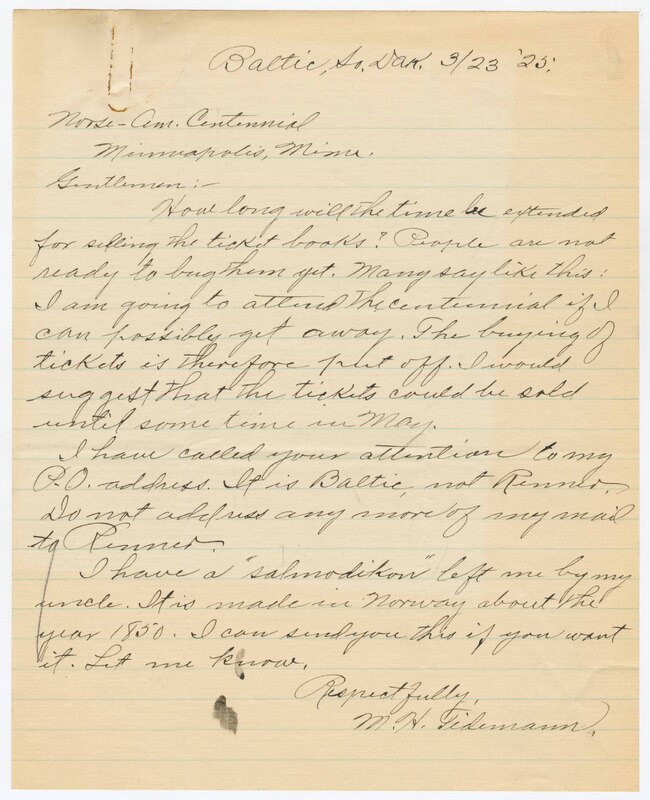 Baltic, So. Dak. 3/23 '25.
Norse-Am. Centennial
Minneapolis, Minn.
Gentlemen:-
How long will the time be extended
for selling the ticket books? People are not
ready to buy them yet. Many say like this:
I am going to attend the centennial if I
can possibly get away. The buying of
tickets is therefore put off. I would
suggest that the tickets could be sold
until some time in May.
I have called your attention to my
P.O. address. It is Baltic, not Renner.
Do not address any more of my mail
to Renner.
I have a "salmodikon" left me by my
uncle. It is made in Norway about the
year 1850. I can send you this if you want
it. Let me know.
Respectfully,
M. H. Tidemann.